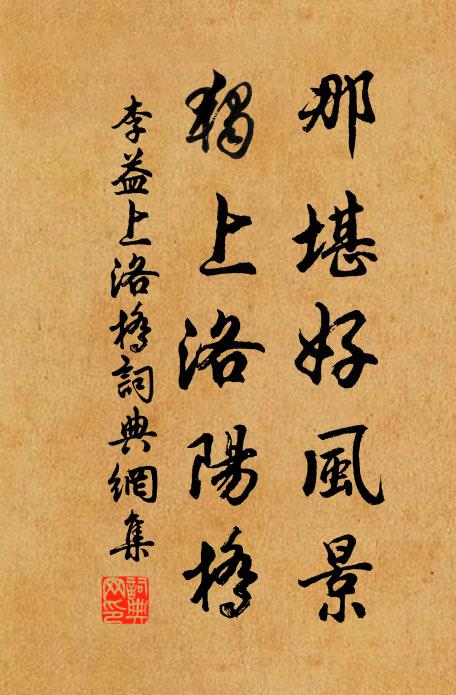 那堪好風景
獨上洛陽橋
李益上洛橋詞典網集
詞典網印